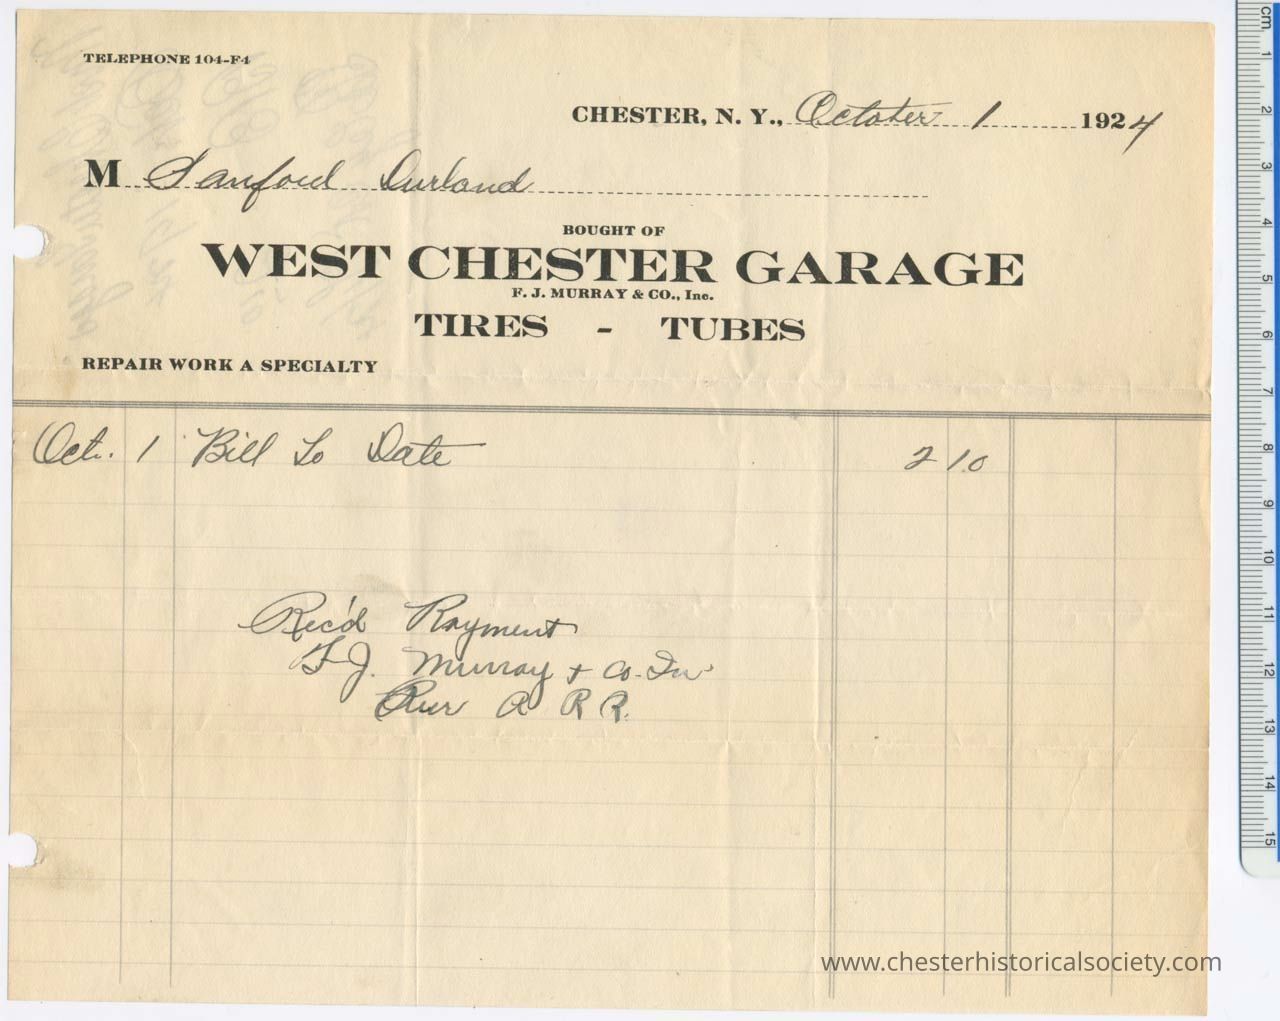 TELEPHONE 104-F4
CHESTER, N. Y., October 1 1924
M Sanford Durland
BOUGHT OF
WEST CHESTER GARAGE
F. J. MURRAY & CO., Inc.
TIRES - TUBES
REPAIR WORK A SPECIALTY
Oct. 1 Bill To Date 2 10
Rec'd Payment
F J. Murray + Co. Inc
Per A R R.
www.chesterhistoricalsociety.com
cm 1 2 3 4 5 6 7 8 9 10 11 12 13 14 15